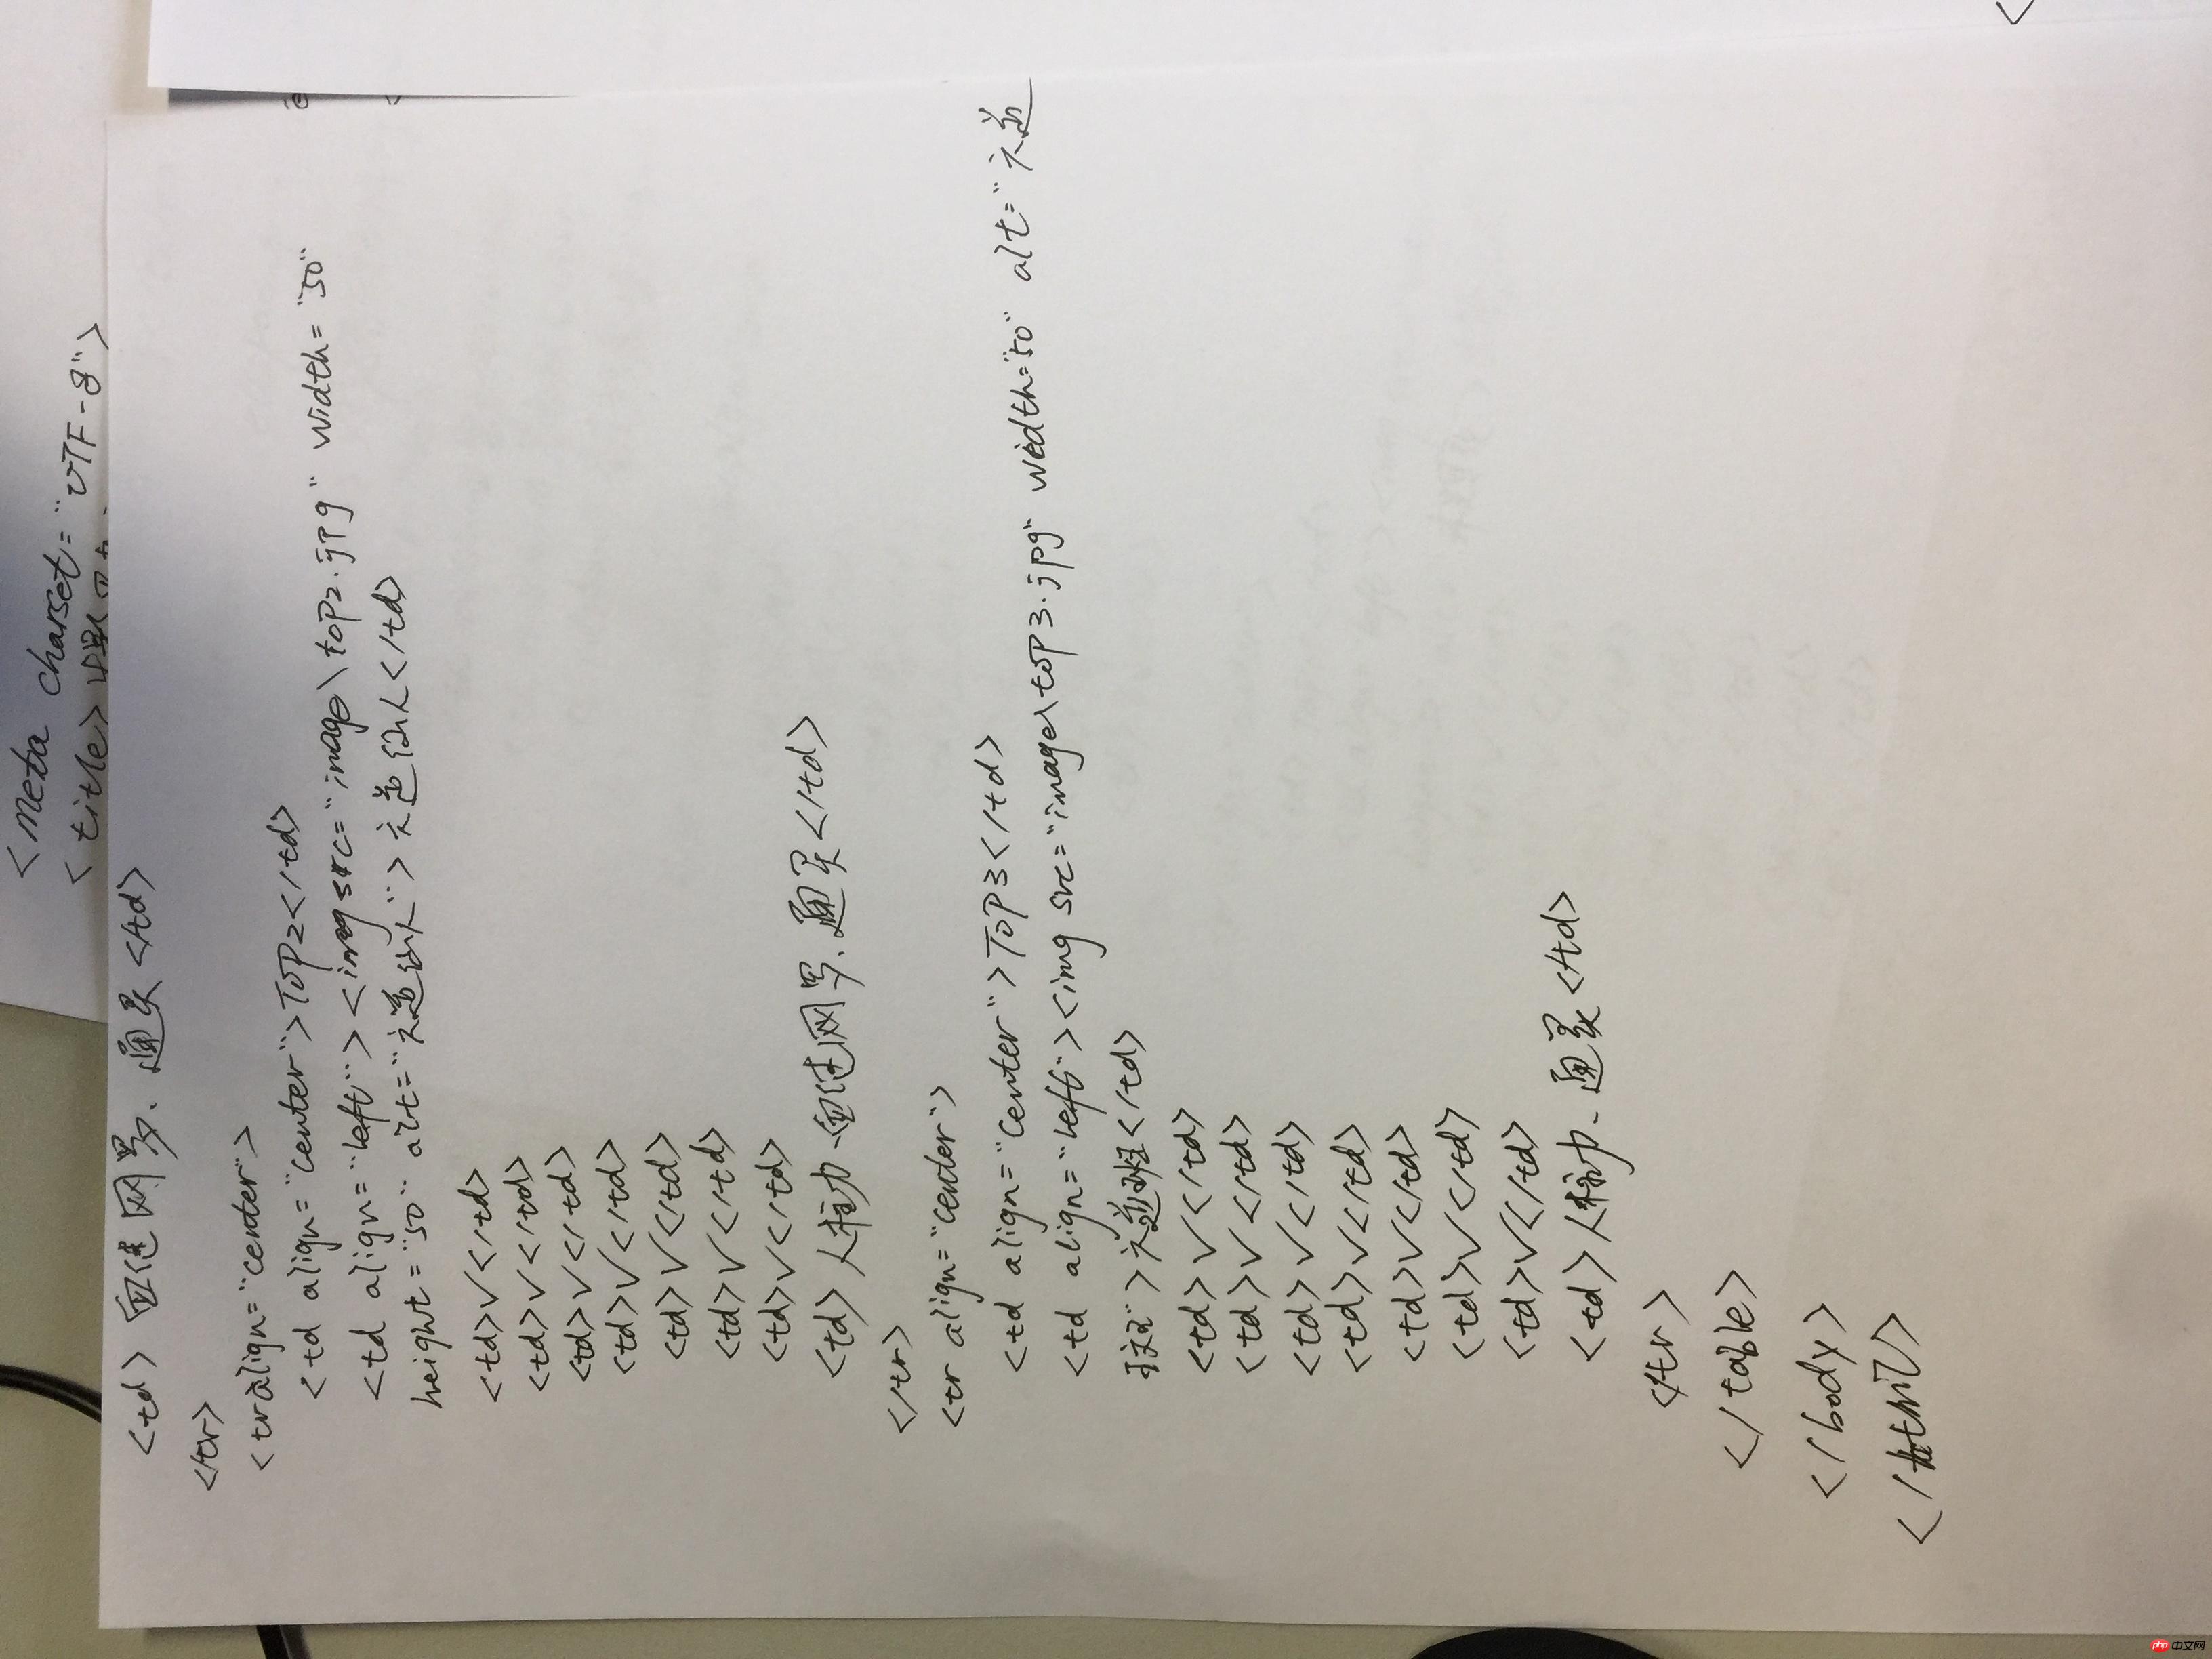 <meta charset="UTF-8">
<title>
<td>血继网罗、通灵</td>
</tr>
<tr align="center">
<td align="center">TOP2</td>
<td align="left"><img src="image\top2.jpg" width="50"
height="50" alt="六道仙人">六道仙人</td>
<td>√</td>
<td>√</td>
<td>√</td>
<td>√</td>
<td>√</td>
<td>√</td>
<td>√</td>
<td>人柱力、血继网罗、通灵</td>
</tr>
<tr align="center">
<td align="center">TOP3</td>
<td align="left"><img src="image\top3.jpg" width="50" alt="六道
">六道斑</td>
<td>√</td>
<td>√</td>
<td>√</td>
<td>√</td>
<td>√</td>
<td>√</td>
<td>√</td>
<td>人柱力、通灵</td>
</tr>
</table>
</body>
</html>
php 中文网